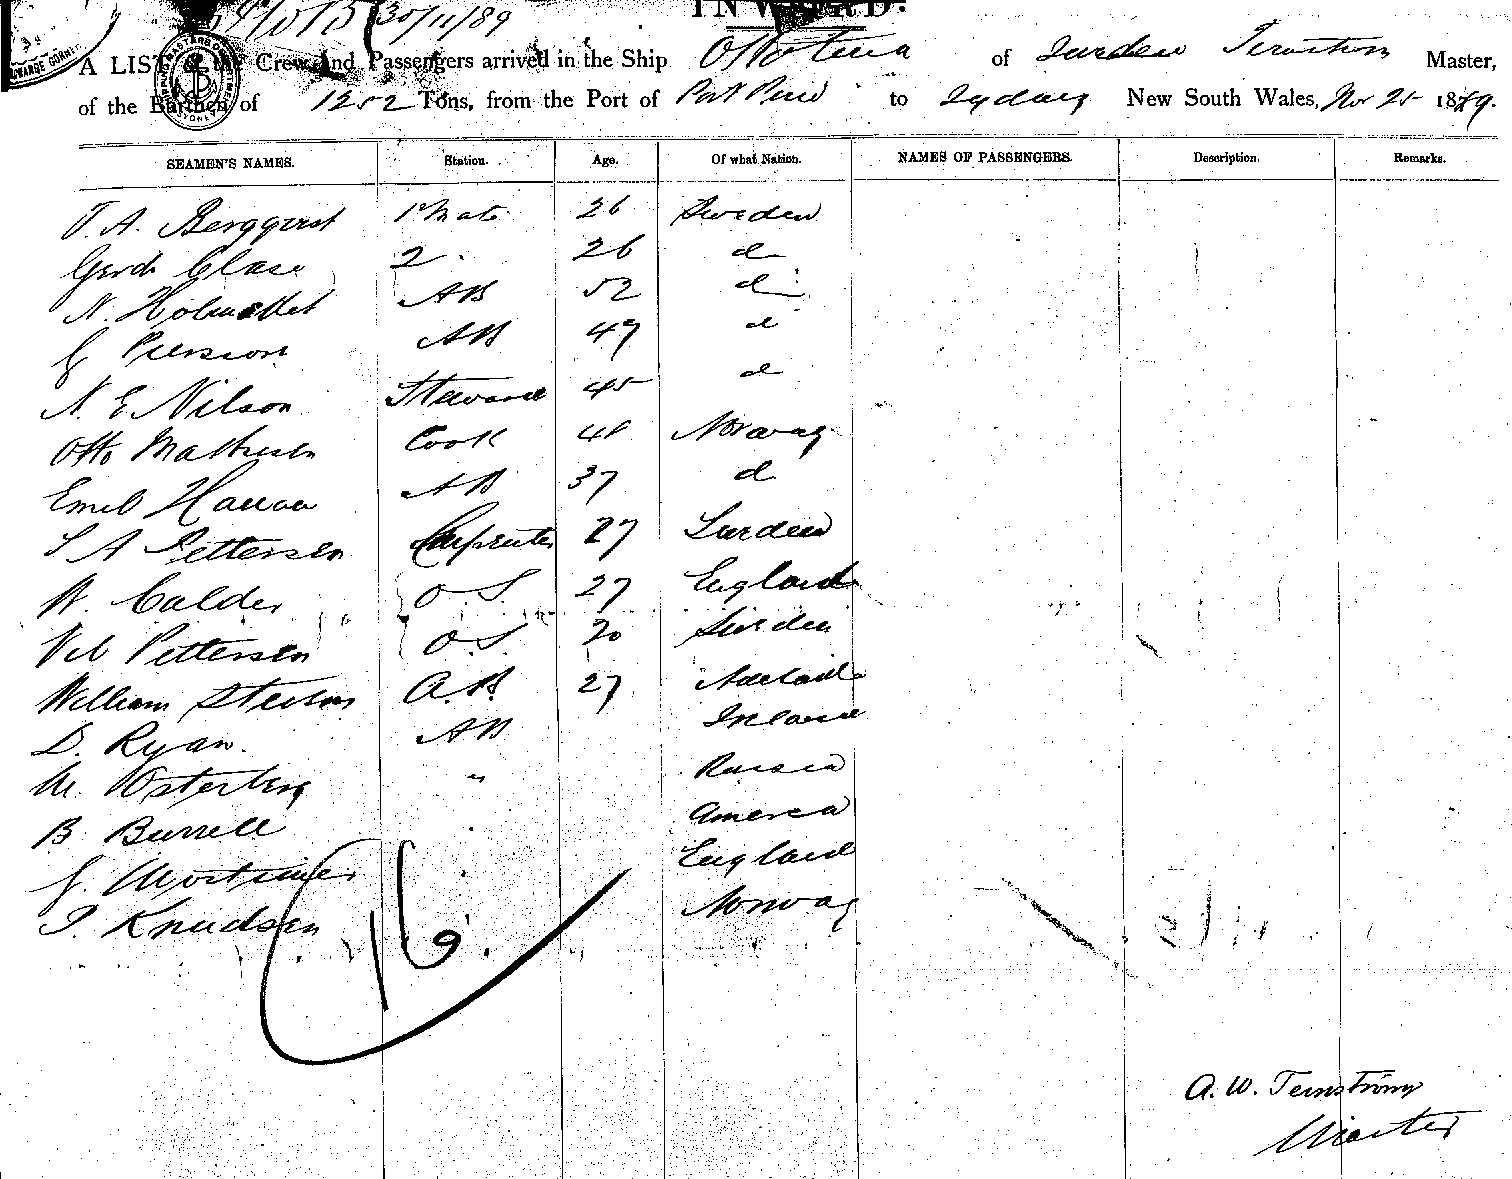 30/11/89
INWARD.
A LIST of the Crew and Passengers arrived in the Ship of Sweden Master,
of the Burthen of 1252 Tons, from the Port of Port Pirie to Sydney New South Wales, Nov 25 1889.
SEAMEN'S NAMES. Station. Age. Of what Nation. NAMES OF PASSENGERS. Description. Remarks.
A. Bergqvist 1 Mate 26 Sweden
Clase 2 26 d
N. AB 52 d
Peersson AB 47 d
N. E. Nilson Steward 45 d
Otto Mathisen Cook 48 Norway
Emil AB 37 d
A Pettersen Carpenter 27 Sweden
Calder O.S. 27 England
Pettersen O.S. 20 Sweden
William A.B. 27 Adelaide
D. Ryan. AB Ireland
M. Osterberg " Russia
B. Burrell America
J. Mortimer England
Knudsen Norway
16.
A. W. Ternström
Master